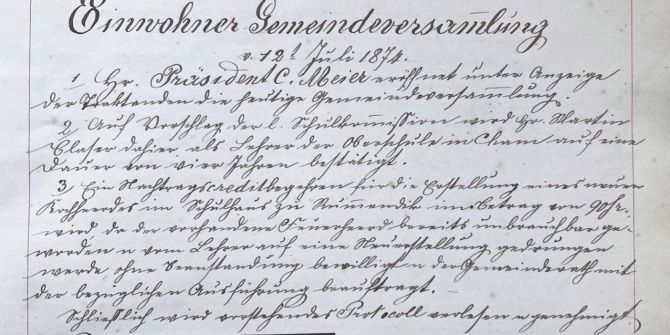 Einwohner Gemeindeversam̅lung
v. 12t Juli 1874.
1 Hr. Präsident C. Meier eröffnet unter Anzeige
der Traktanden die heutige Gemeindeversam̅lung.
2 Auf Vorschlag der l. Schulkom̅ission wird Hr. Martin
Blaser dahier als Lehrer der Oberschule in Cham auf eine
Dauer von vier Jahren bestätigt.
3. Ein Nachtragscreditbegehren für die Erstellung eines neuen
Kochherdes im Schulhaus zu Rum̅endik im Betrag von 90fr.
wird, da der vorhandene Feuerheerd bereits unbrauchbar ge-
worden u vom Lehrer auf eine Neuerstellung gedrungen
werde, ohne Beanstandung bewilligt u der Gemeinderath mit
der bezüglichen Ausführung beauftragt. –
Schließlich wird vorstehendes Protocoll verlesen u genehmigt